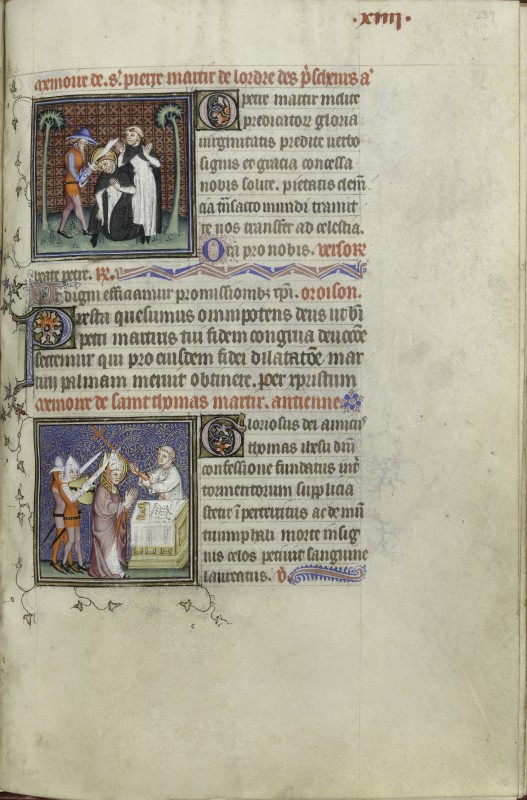 .xiiii.
239
Memoire de. S. pierre martir de lordre des p̄scheurs aᵃ
O petre martir inclite
predicator gloria
virginitatis predite verbo
signis et gracia concessa
nobis solite. pietatis clem̄
cia trāsacto mundi tramit
te nos transfer ad celestia.
Ora pro nobis. Versᵒ
beate petre. R.
Vt digni efficiamur promissionibꝫ xp̄i. oroison.
Presta quesumus omnipotens deus ut bī
petri martiris tui fidem congrua deuocōe
sectemur qui pro eiusdem fidei dilatatōe mar
tirij palmam meruit obtinere. Per xpristum
Memoire de saint thomas martir. antienne
Gloriosus dei amicus
thomas
confessione fundatus int̄
tormentorum supplicia
stetit ī perterritus ac de mū
triumphali morte insig
nis celos petiuit sanguine
laureatus. v̄